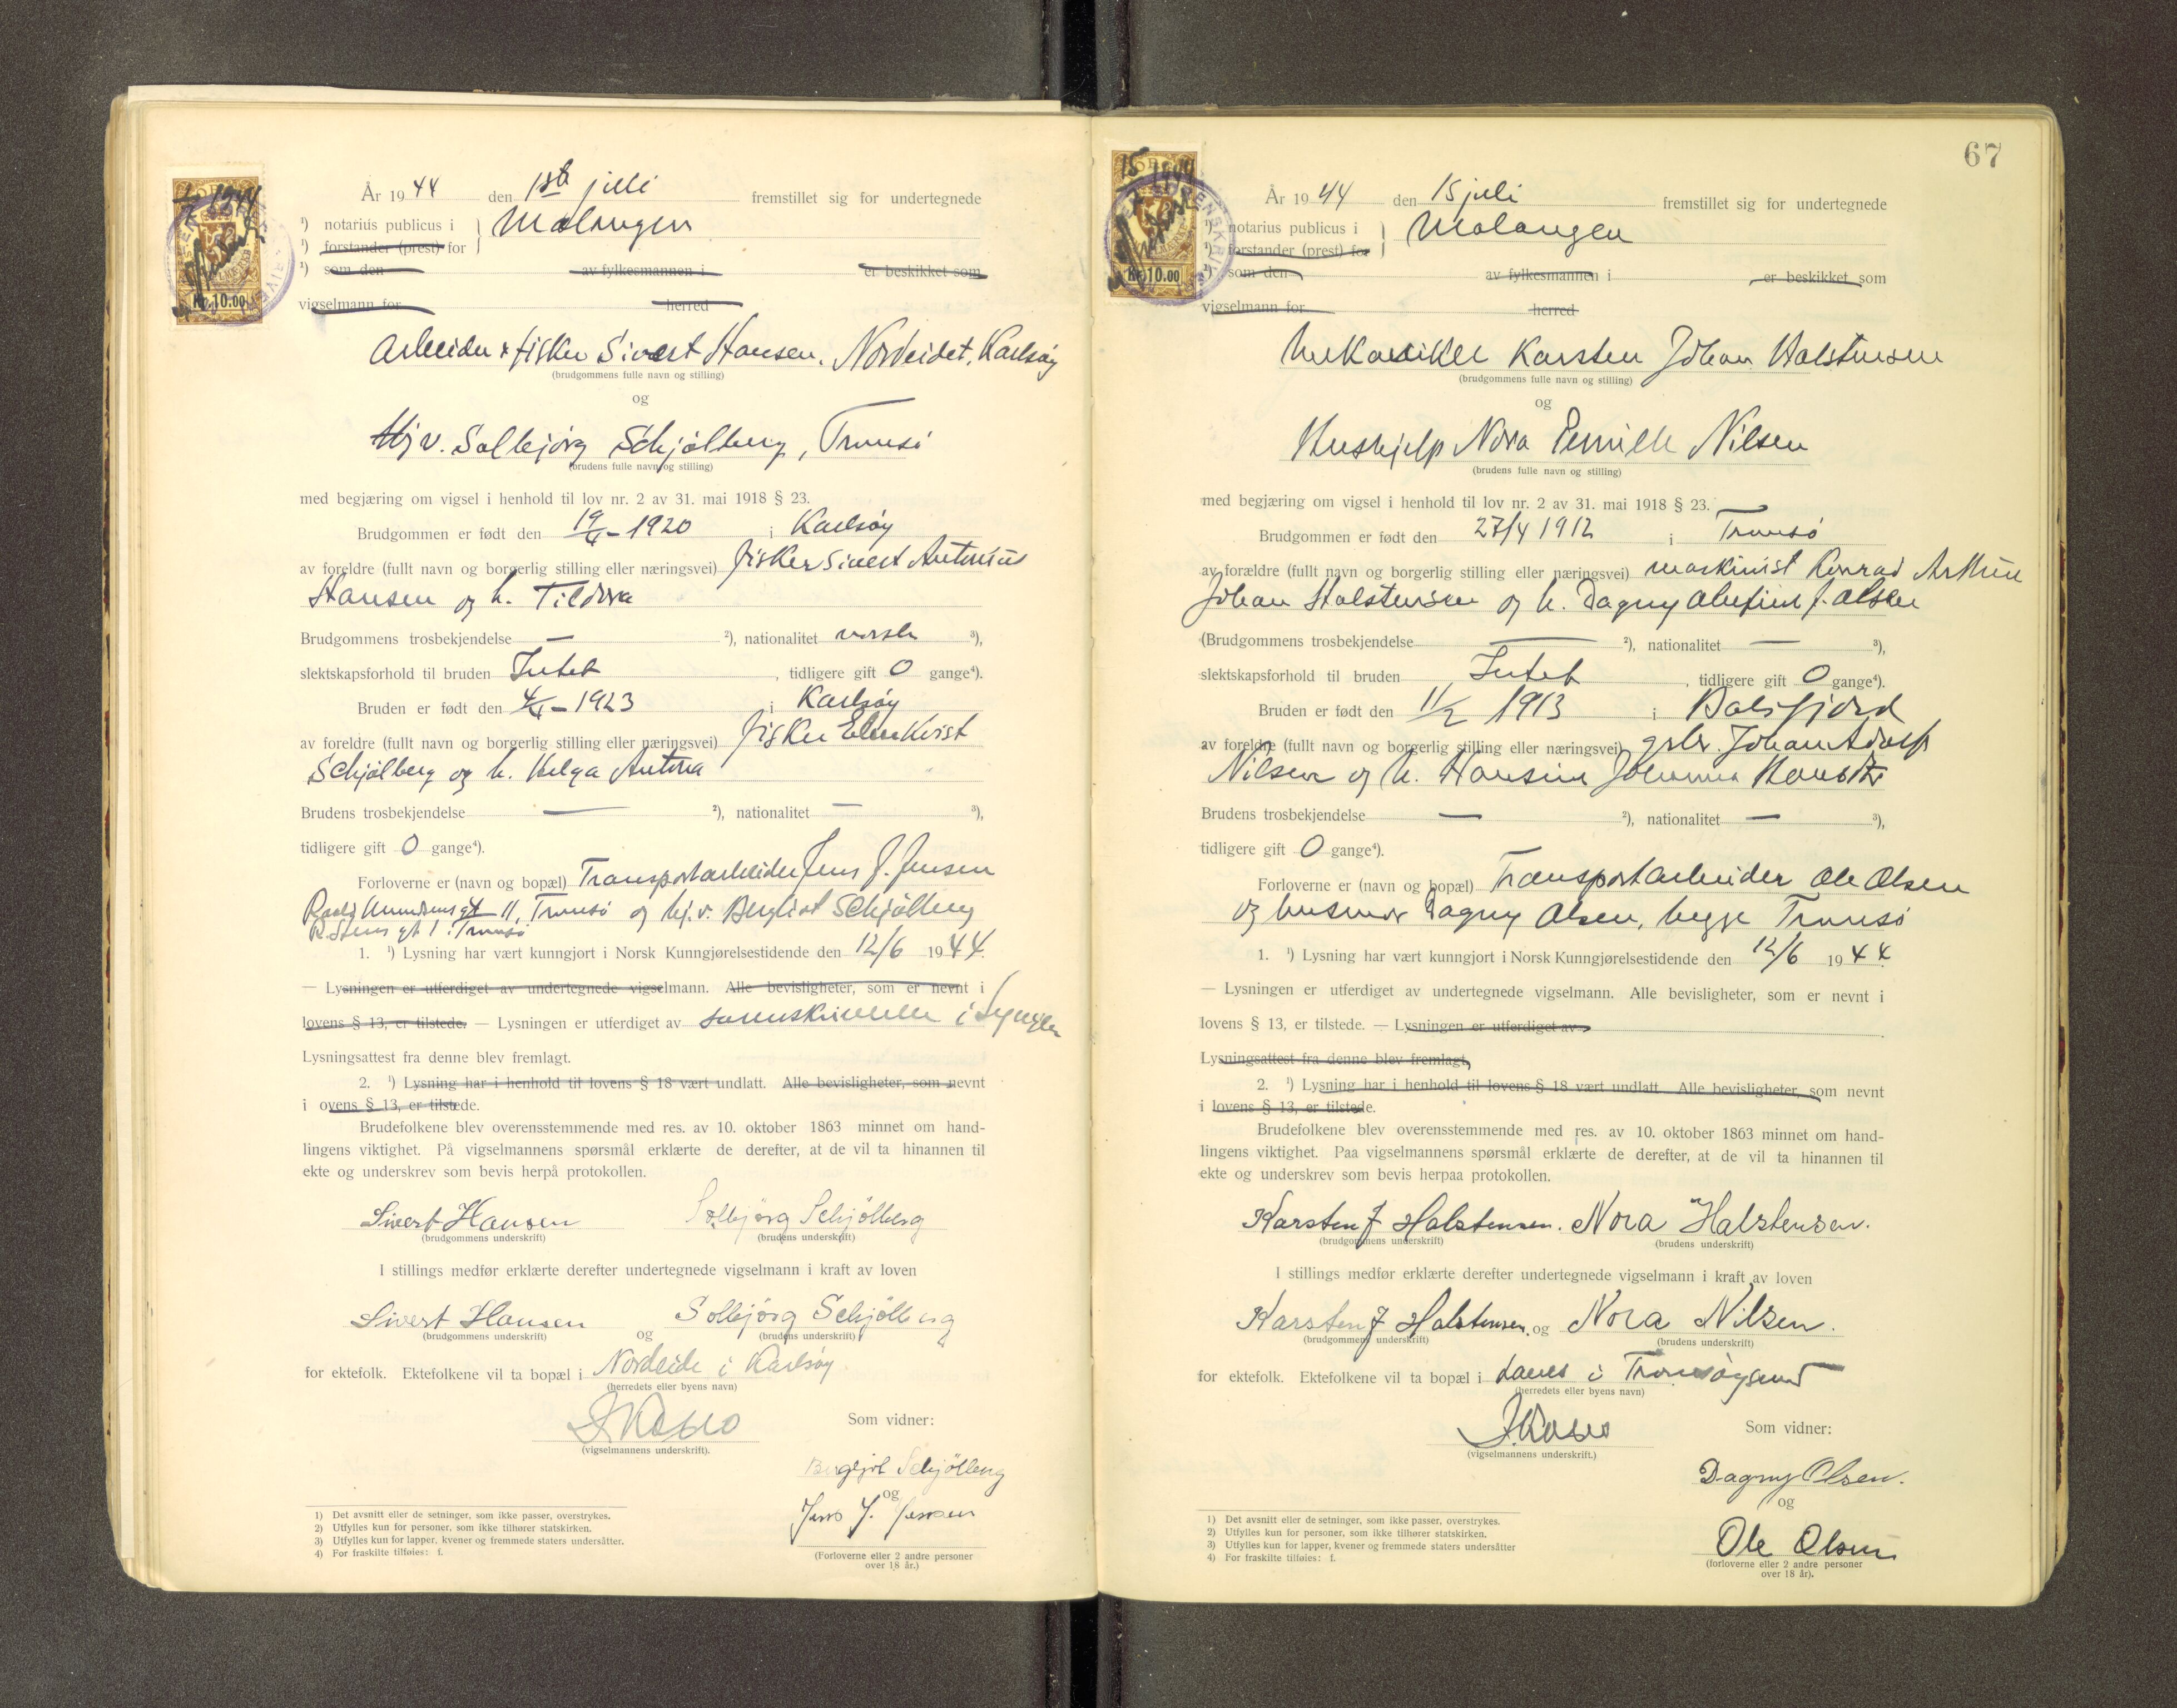 År 1944 den 1ste juli fremstillet sig for undertegnede
¹) notarius publicus i } Malangen
¹) forstander (prest) for
¹) som den av fylkesmannen i er beskikket som
vigselmann for herred
Kr. 10.00
Arbeider & fisker Sivert Hansen, Nordeidet, Karlsøy
(brudgommens fulle navn og stilling)
og
Hj v. Solbjørg Schjølberg, Tromsø
(brudens fulle navn og stilling)
med begjæring om vigsel i henhold til lov nr. 2 av 31. mai 1918 § 23.
Brudgommen er født den 1920 i Karlsøy
av foreldre (fullt navn og borgerlig stilling eller næringsvei) fisker Sivert Antonius
Hansen og h. Tildora
Brudgommens trosbekjendelse — ²), nationalitet norsk ³),
slektskapsforhold til bruden Intet, tidligere gift 0 gange⁴).
Bruden er født den 1923 i Karlsøy
av foreldre (fullt navn og borgerlig stilling eller næringsvei) fisker Elenkvist
Schjølberg og h. Helga Antona
Brudens trosbekjendelse — ²), nationalitet — ³),
tidligere gift 0 gange⁴).
Forloverne er (navn og bopæl) Transportarbeider Jens J. Jensen
Roald Amundsensgt 11, Tromsø og hj.v. Bergliot Schjølberg
gt 1. Tromsø
1. ¹) Lysning har vært kunngjort i Norsk Kunngjørelsestidende den 12/6 1944.
— Lysningen er utferdiget av undertegnede vigselmann. Alle bevisligheter, som er nevnt i
lovens § 13, er tilstede. — Lysningen er utferdiget av sorenskriveren i Lyngen
Lysningsattest fra denne blev fremlagt.
2. ¹) Lysning har i henhold til lovens § 18 vært undlatt. Alle bevisligheter, som nevnt
i ovens § 13, er tilstede.
Brudefolkene blev overensstemmende med res. av 10. oktober 1863 minnet om hand-
lingens viktighet. På vigselmannens spørsmål erklærte de derefter, at de vil ta hinannen til
ekte og underskrev som bevis herpå protokollen.
Sivert Hansen Solbjørg Schjölberg
(brudgommens underskrift) (brudens underskrift)
I stillings medfør erklærte derefter undertegnede vigselmann i kraft av loven
Sivert Hansen og Solbjörg Schjölberg
(brudgommens underskrift) (brudens underskrift)
for ektefolk. Ektefolkene vil ta bopæl i Nordeide i Karlsøy
(herredets eller byens navn)
(vigselmannens underskrift).
Som vidner:
Schjölberg
og
Jens J. Jensen
(Forloverne eller 2 andre personer
over 18 år.)
1) Det avsnitt eller de setninger, som ikke passer, overstrykes.
2) Utfylles kun for personer, som ikke tilhører statskirken.
3) Utfylles kun for lapper, kvener og fremmede staters undersåtter.
4) For fraskilte tilføies: f.
67
År 1944 den 15 juli fremstillet sig for undertegnede
¹) notarius publicus i } Malangen
¹) forstander (prest) for
¹) som den av fylkesmannen i er beskikket som
vigselmann for herred
Kr. 10.00
Mekaniker Karsten Johan Halstensen
(brudgommens fulle navn og stilling)
og
Hushjelp Nora Pernille Nilsen
(brudens fulle navn og stilling)
med begjæring om vigsel i henhold til lov nr. 2 av 31. mai 1918 § 23.
Brudgommen er født den 27/4 1912 i Tromsø
av forældre (fullt navn og borgerlig stilling eller næringsvei) maskinist Konrad Arthur
Johan Halstensen og h. Dagny f. Olsen
(Brudgommens trosbekjendelse — ²), nationalitet — ³),
slektskapsforhold til bruden Intet, tidligere gift 0 gange⁴).
Bruden er født den 11/2 1913 i Balsfjord
av foreldre (fullt navn og borgerlig stilling eller næringsvei) gbr. Johan Adolf
Nilsen og h. Hansine Johanna
Brudens trosbekjendelse — ²), nationalitet — ³),
tidligere gift 0 gange⁴).
Forloverne er (navn og bopæl) Transportarbeider Ole Olsen
og husmor Dagny Olsen, begge Tromsø
1. ¹) Lysning har vært kunngjort i Norsk Kunngjørelsestidende den 12/6 1944.
— Lysningen er utferdiget av undertegnede vigselmann. Alle bevisligheter, som er nevnt i
lovens § 13, er tilstede. — Lysningen er utferdiget av
Lysningsattest fra denne blev fremlagt.
2. ¹) Lysning har i henhold til lovens § 18 vært undlatt. Alle bevisligheter, som nevnt
i lovens § 13, er tilstede.
Brudefolkene blev overensstemmende med res. av 10. oktober 1863 minnet om hand-
lingens viktighet. Paa vigselmannens spørsmål erklærte de derefter, at de vil ta hinannen til
ekte og underskrev som bevis herpaa protokollen.
Karsten J Halstensen. Nora Halstensen.
(brudgommens underskrift) (brudens underskrift)
I stillings medfør erklærte derefter undertegnede vigselmann i kraft av loven
Karsten J Halstensen. og Nora Nilsen.
(brudgommens underskrift) (brudens underskrift)
for ektefolk. Ektefolkene vil ta bopæl i Lanes i Tromsøysund
(herredets eller byens navn)
(vigselmannens underskrift.)
Som vidner:
Dagny Olsen.
og
Ole Olsen
(forloverne eller 2 andre personer
over 18 år).
1) Det avsnitt eller de setninger, som ikke passer, overstrykes.
2) Utfylles kun for personer, som ikke tilhører statskirken.
3) Utfylles kun for lapper, kvener og fremmede staters undersåtter
4) For fraskilte tilføies: f.